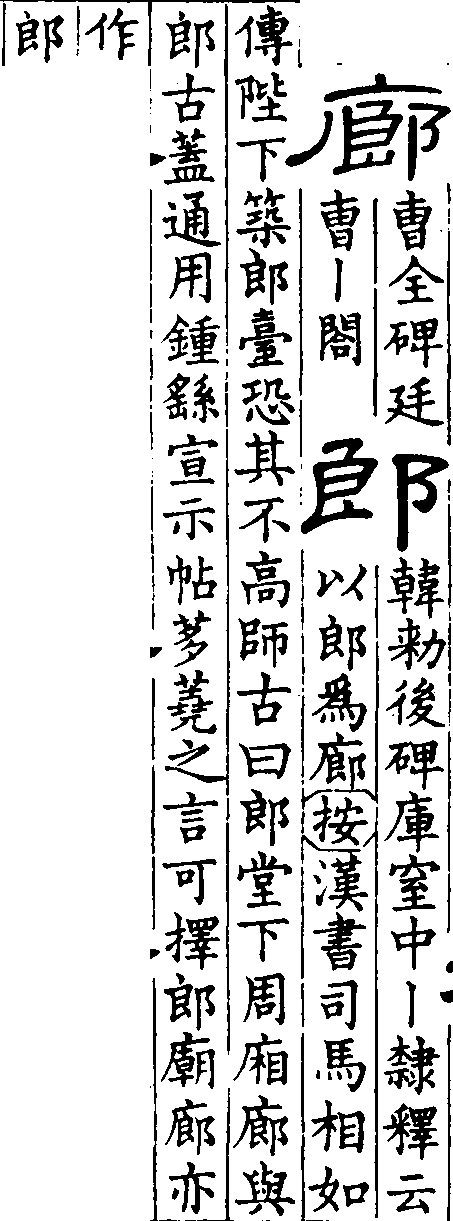 廊
曹全碑廷
曹丨閣
郎
韓勑後碑庫窒中丨隸釋云
以郎爲廊按漢書司馬相如
傳陛下築郎臺恐其不高師古曰郎堂下周廂廊與
郎古蓋通用鍾繇宣示帖茤蕘之言可擇郎廟廊亦
作
郎